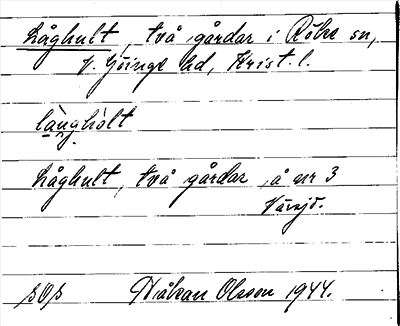 Låghult, två gårdar i Röke sn,
V. Göinge hd, Krist. l.
làŋghòlt
Låghult, två gårdar å nr 3
Håkan Olsson 1944.